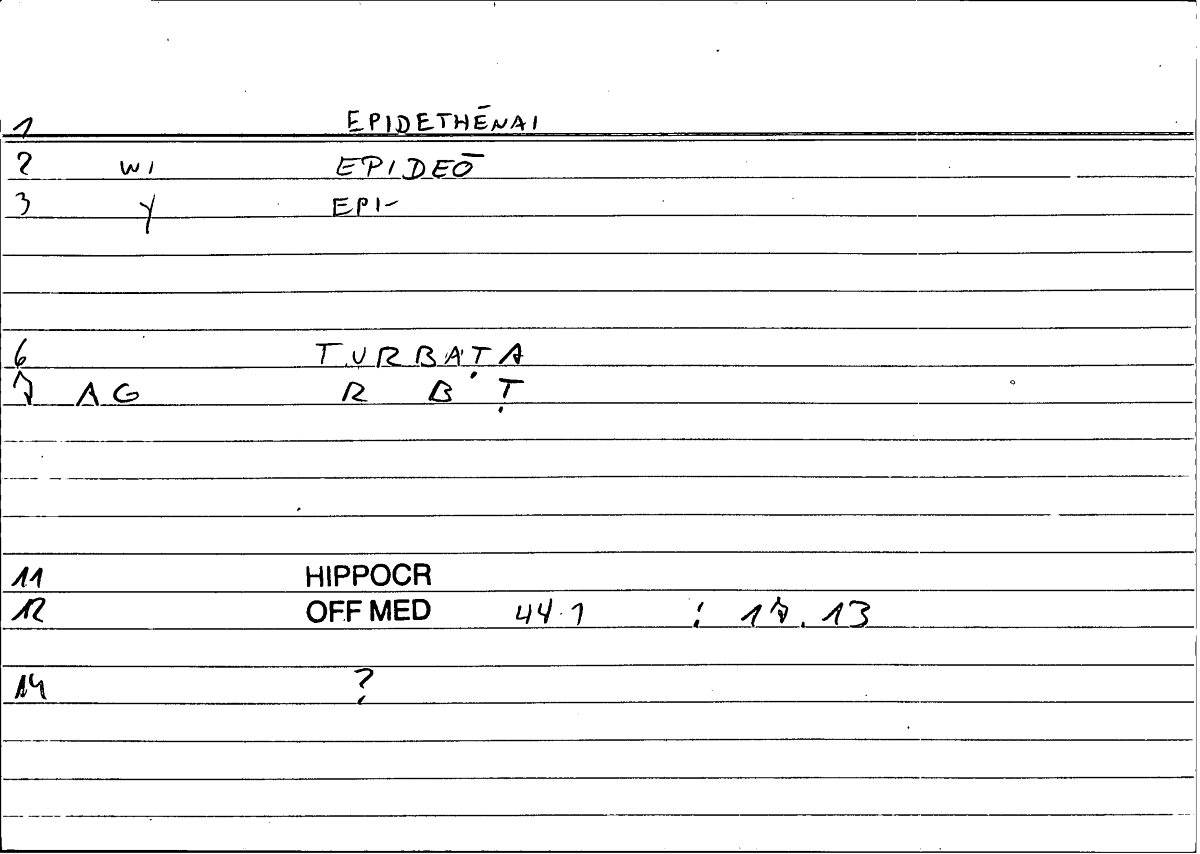 1 EPIDETHĒNAI
2 WI EPIDEŌ
3 Y EPI-
6 TURBAṬA
7 AG R B Ṭ
11 HIPPOCR
12 OFF MED 44.1 : 17.13
14 ?